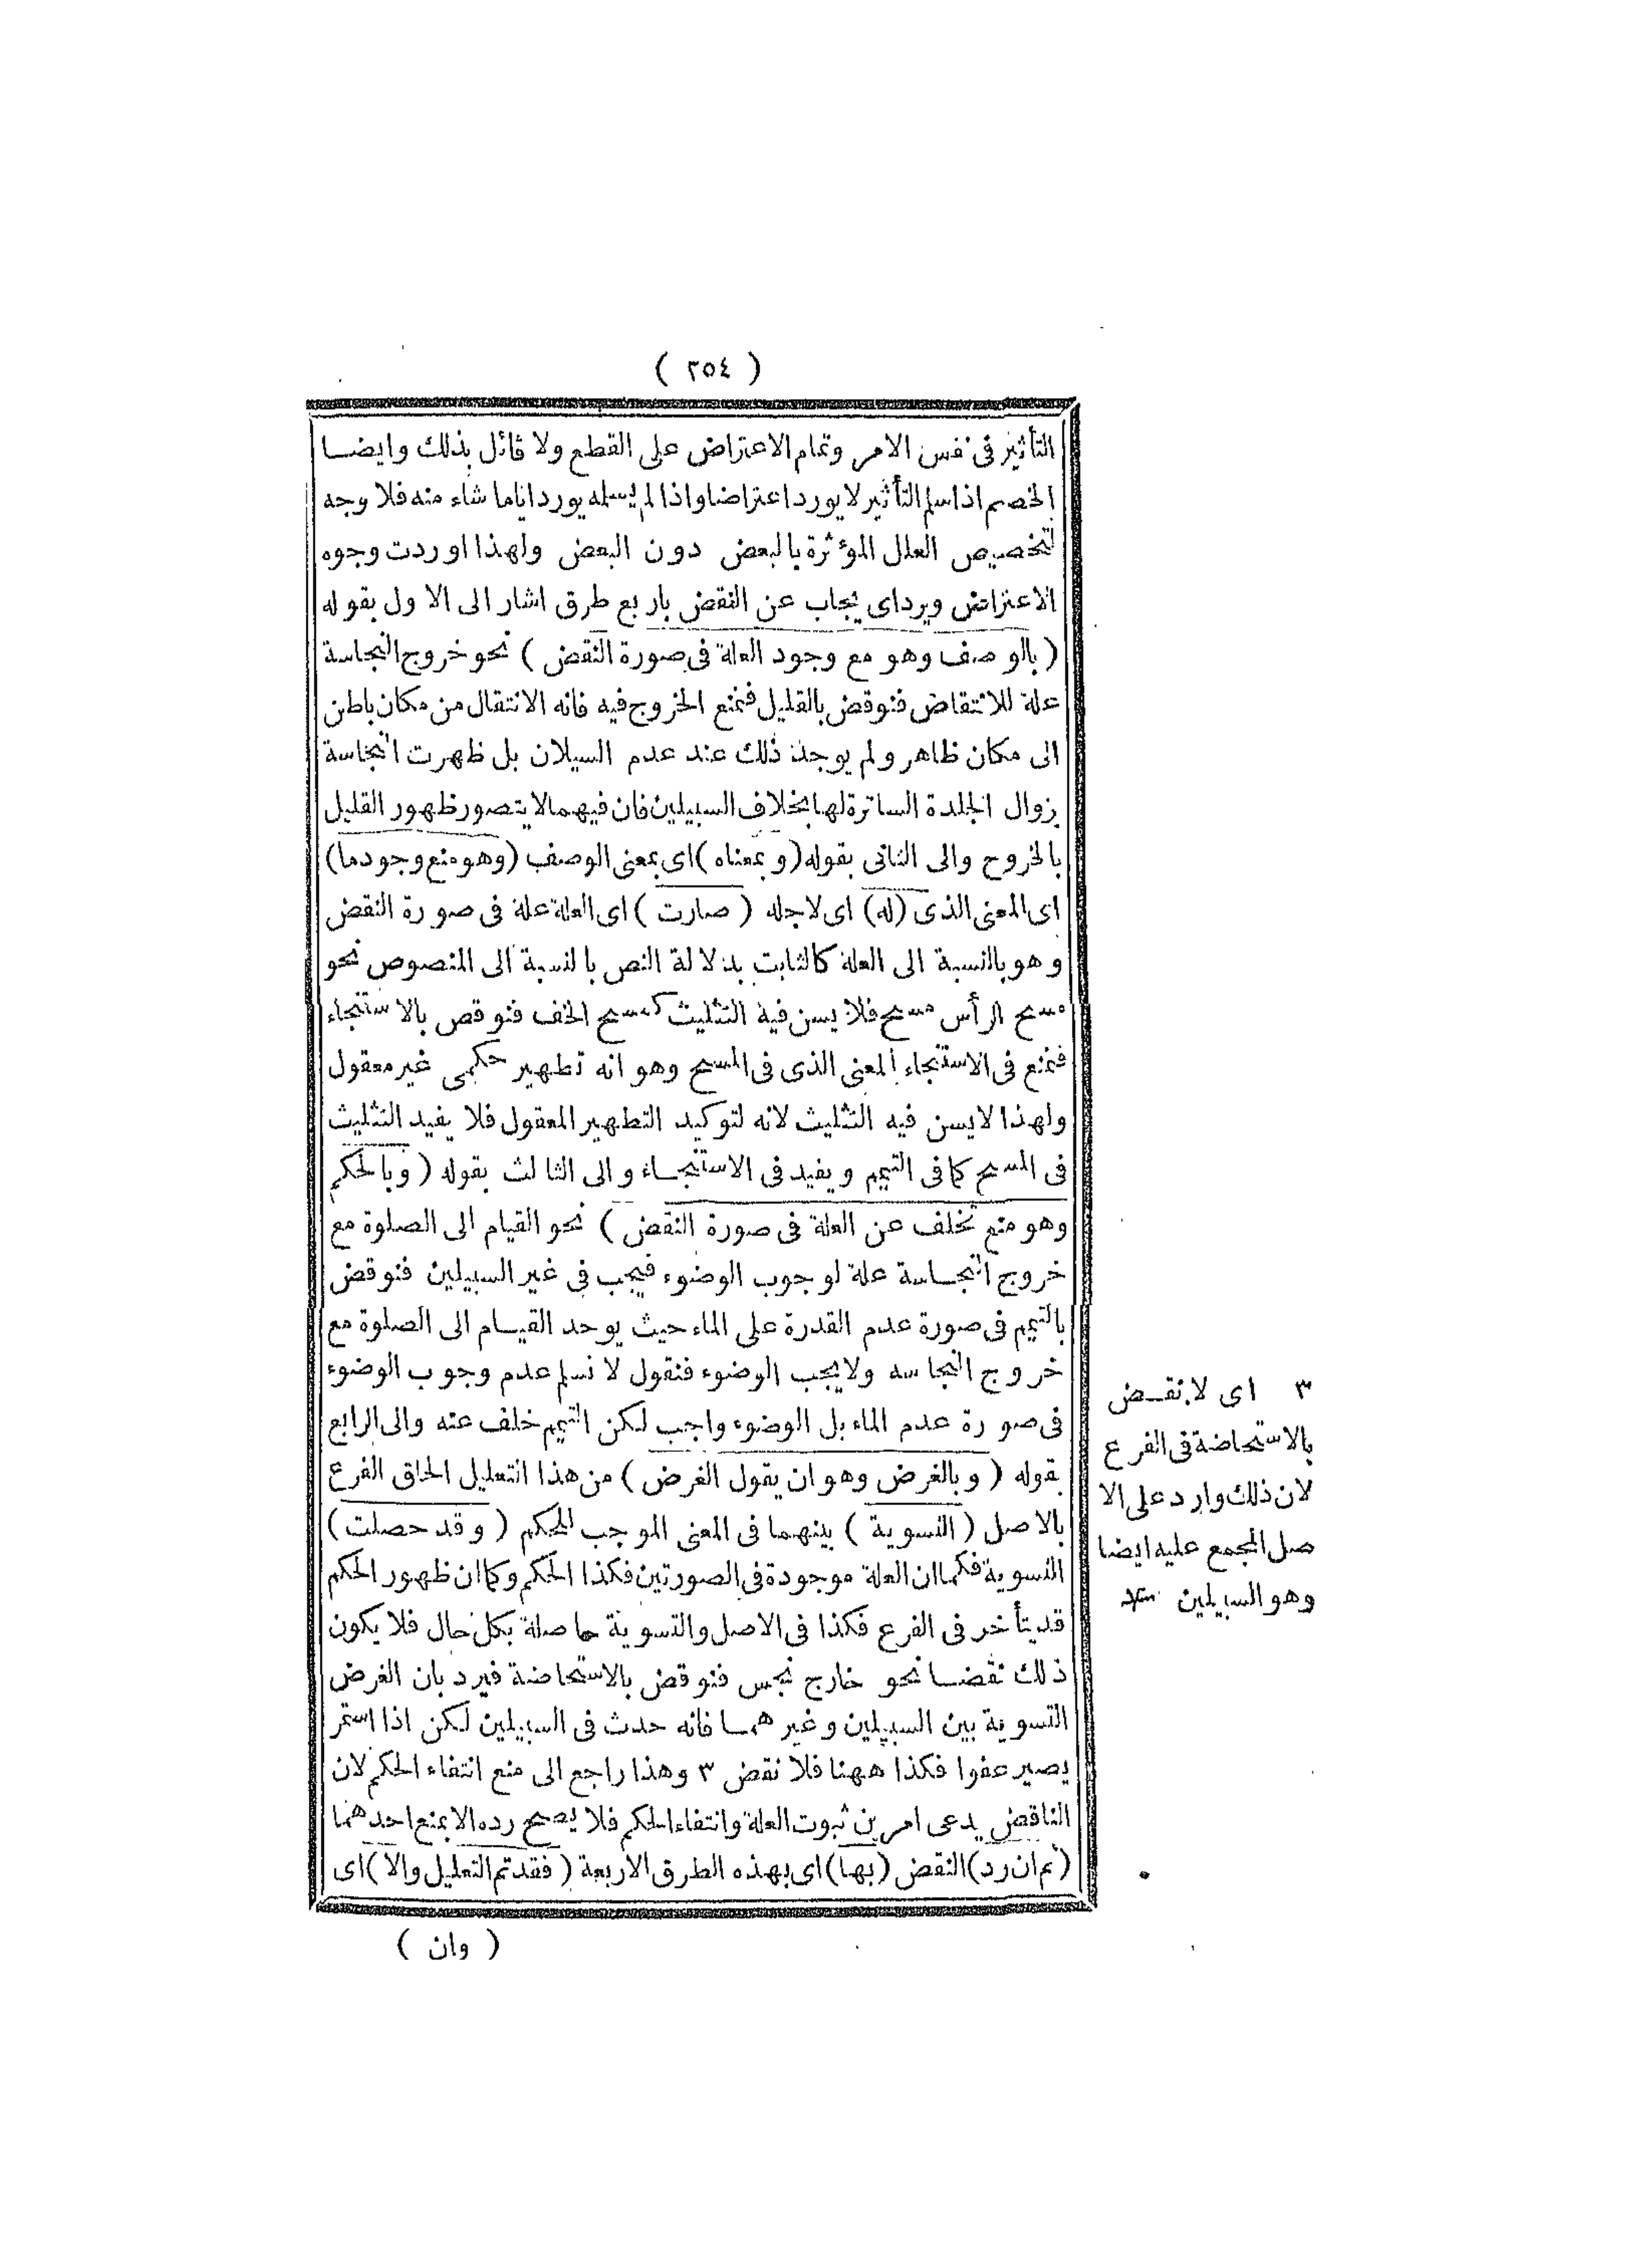 ( ٢٥٤ )
التأثير فى نفس الامر وتمام الاعتراض على القطع ولا قائل بذلك وايضا
الخصم اذا سلم التأثير لا يورد اعتراضا واذا لم يسلمه يورد اياما شاء منه فلا وجه
لتخصيص العلل المؤثرة بالبعض دون البعض ولهذا اوردت وجوه
الاعتراض ويرد اى يجاب عن النقض باربع طرق اشار الى الاول بقوله
( بالوصف وهو مع وجود العلة فى صورة النقض ) نحو خروج النجاسة
علة للانتقاض فنوقض بالقليل فنمنع الخروج فيه فانه الانتقال من مكان باطن
الى مكان ظاهر ولم يوجد ذلك عند عدم السيلان بل ظهرت النجاسة
بزوال الجلدة الساترة لها بخلاف السبيلين فان فيهما لا يتصور ظهور القليل
بالخروح والى الثانى بقوله ( و بمعناه ) اى بمعنى الوصف ( وهو منع وجود ما )
اى المعنى الذى ( له ) اى لاجله ( صارت ) اى العلة علة فى صورة النقض
وهو بالنسبة الى العلة كالثابت بدلالة النص بالنسبة الى المنصوص نحو
مسح الرأس مسح فلا يسن فيه التثليث كمسح الخف فنوقص بالاستنجاء
فنمنع فى الاستنجاء المعنى الذى فى المسح وهو انه تطهير حكمى غير معقول
ولهذا لا يسن فيه التثليث لانه لتوكيد التطهير المعقول فلا يفيد التثليث
فى المسح كما فى التيمم ويفيد فى الاستنجاء والى الثالث بقوله ( وبالحكم
وهو منع تخلف عن العلة فى صورة النقض ) نحو القيام الى الصلوة مع
خروج النجاسة علة لوجوب الوضوء فيجب فى غير السبيلين فنوقض
بالتيمم فى صورة عدم القدرة على الماء حيث يوحد القيام الى الصلوة مع
خروج النجاسه ولا يجب الوضوء فنقول لا نسلم عدم وجوب الوضوء
فى صورة عدم الماء بل الوضوء واجب لكن التيمم خلف عنه والى الرابع
بقوله ( وبالغرض وهو ان يقول الغرض ) من هذا التعليل الحاق الفرع
بالاصل ( التسوية ) بينهما فى المعنى الموجب للحكم ( وقد حصلت )
التسوية فكما ان العلة موجودة فى الصورتين فكذا الحكم وكما ان ظهور الحكم
قد يتأخر فى الفرع فكذا فى الاصل والتسوية حاصلة بكل حال فلا يكون
ذلك نقضا نحو خارج نجس فنوقض بالاستحاضة فيرد بان الغرض
التسوية بين السبيلين وغيرهما فانه حدث فى السبيلين لكن اذا استمر
يصير عفوا فكذا ههنا فلا نقض ٣ وهذا راجع الى منع انتفاء الحكم لان
الناقض يدعى امرين ثبوت العلة وانتفاء الحكم فلا يصح رده الا بمنع احدهما
( ثم ان رد ) النقض ( بها ) اى بهذه الطرق الاربعة ( فقد تم التعليل والا ) اى
( وان )
٣ اى لا نقض
بالاستحاضة فى الفرع
لان ذلك وارد على الا
صل المجمع عليه ايضا
وهو السبيلين